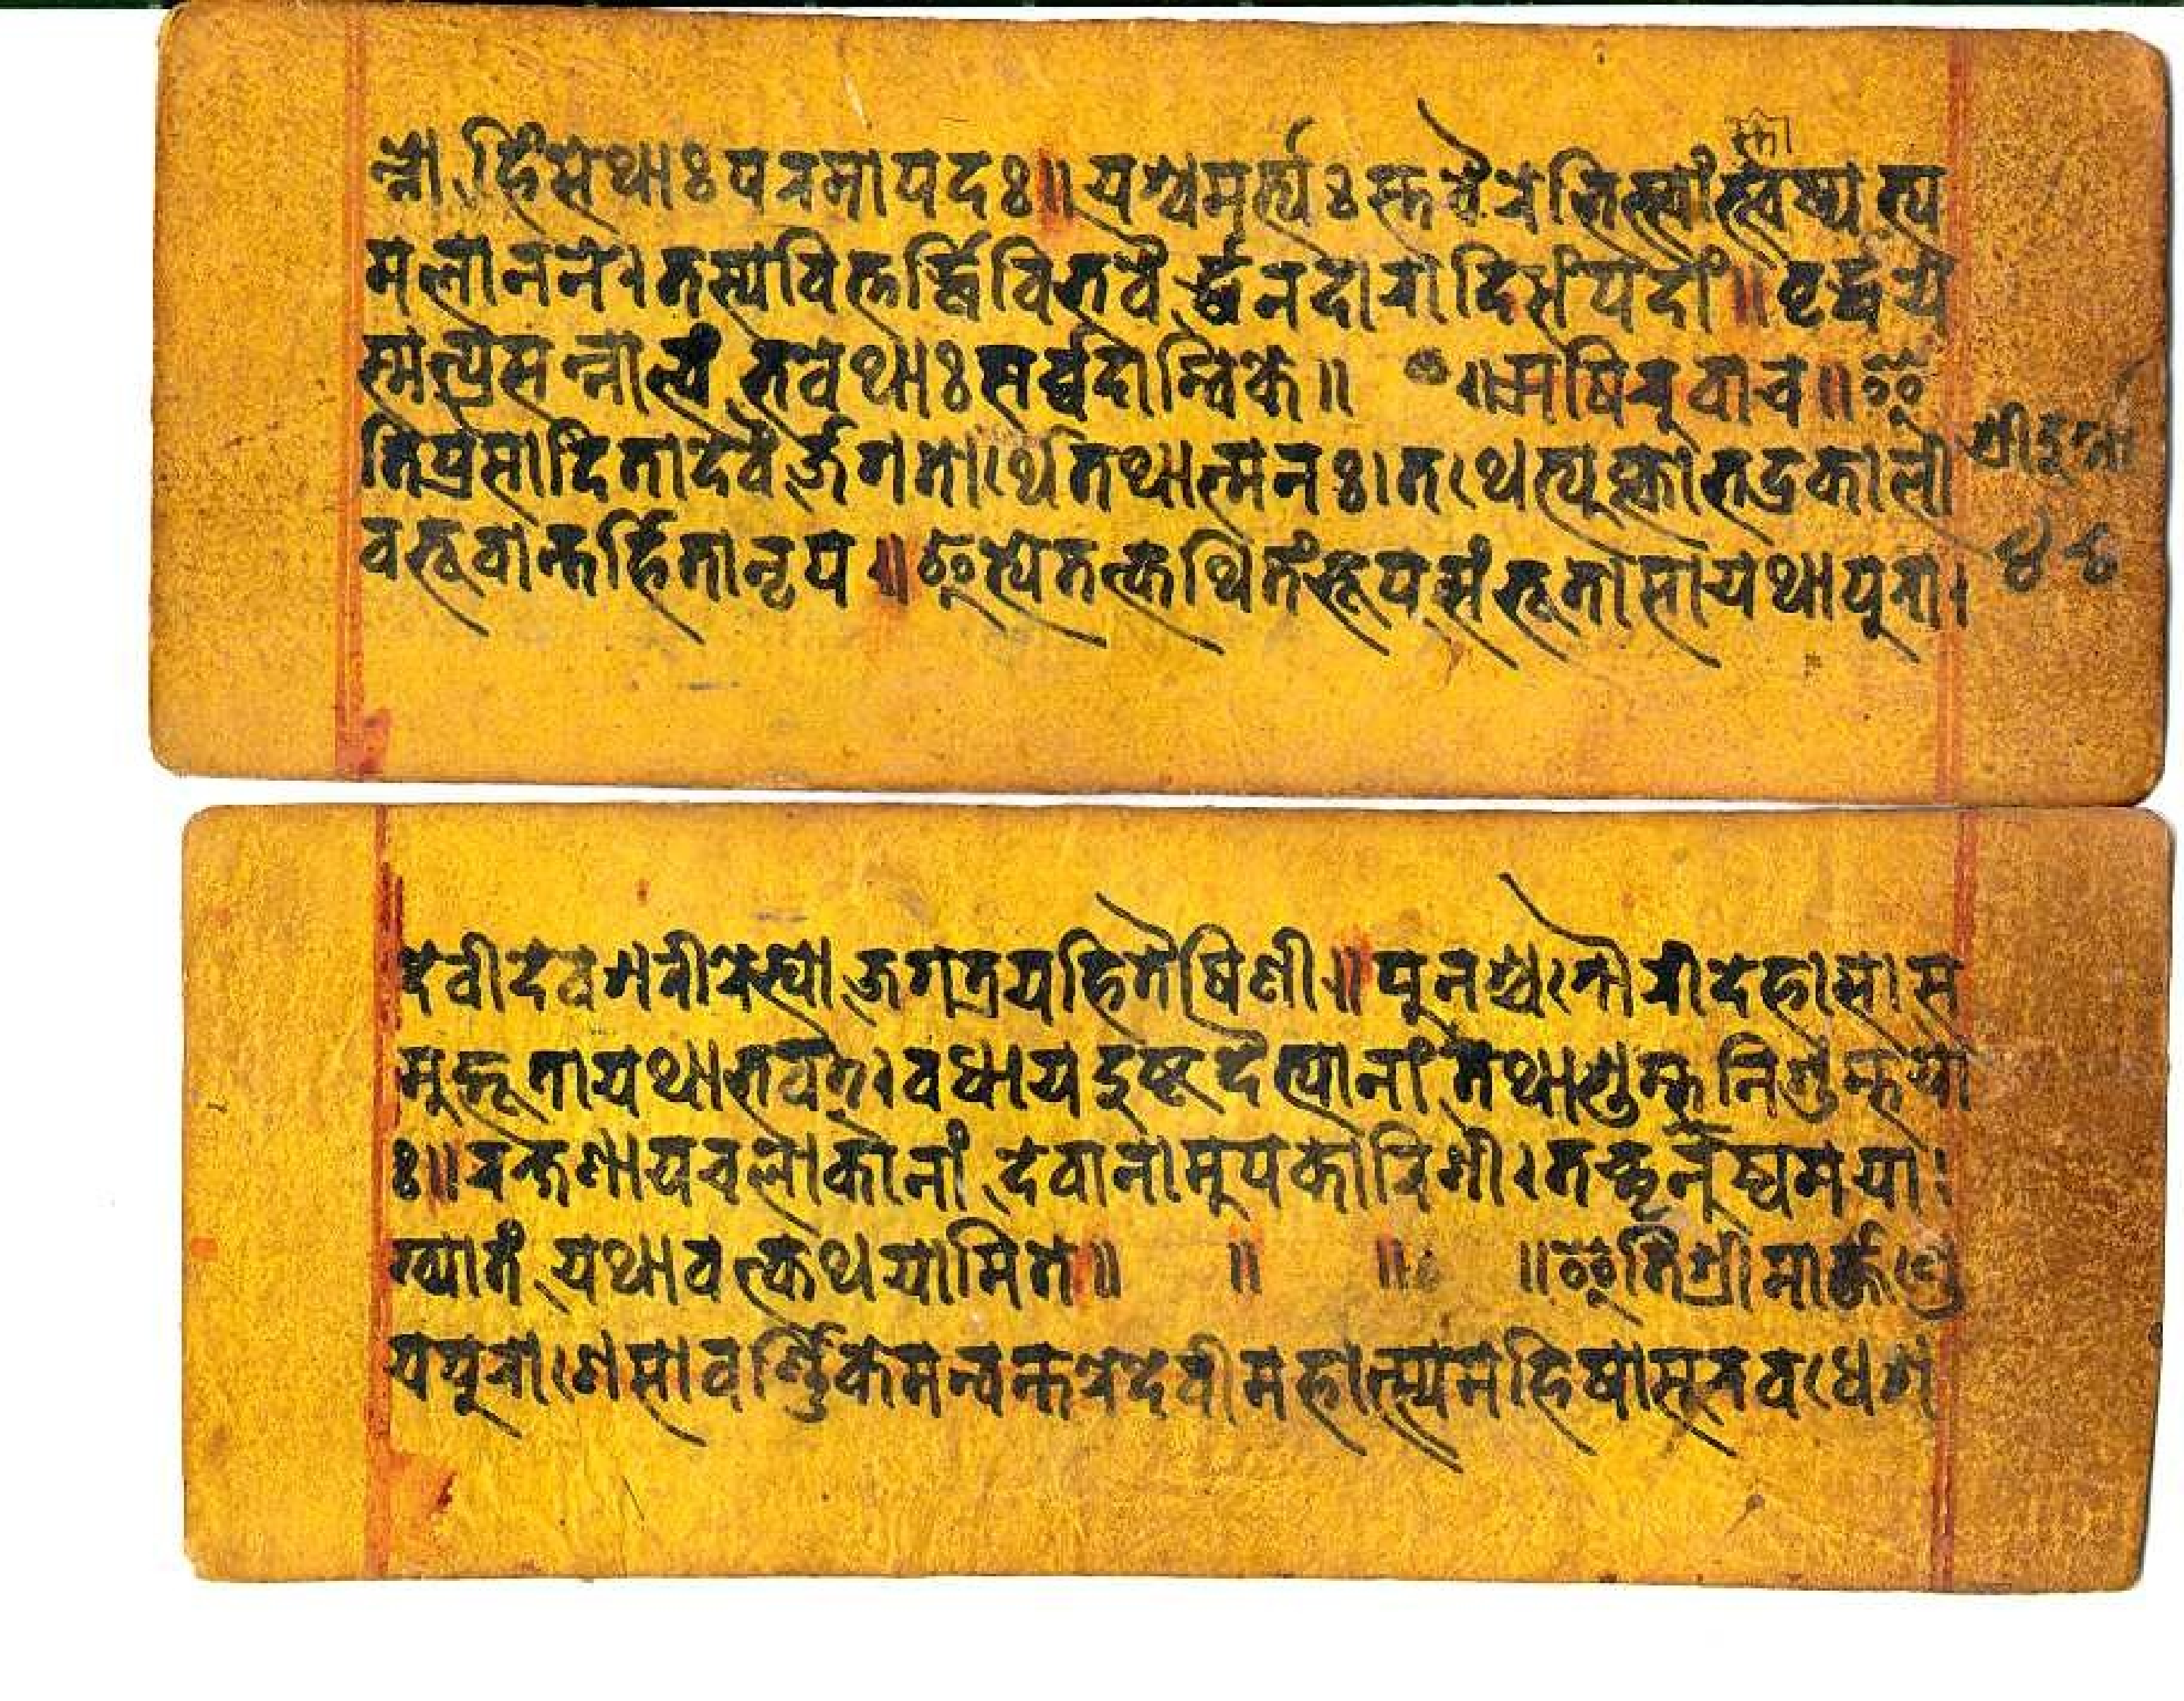 न्नो हिंसेथाः परमापदः॥यश्च मर्त्यः स्तवैरेभिस्त्वां स्तोष्यत्य
मलानने।तस्य वित्तर्द्धिविभवैर्द्धनदारादिसंपदां॥वृद्धये
स्मत्प्रसन्ना त्वं भवेथाः सर्व्वदाम्बिके॥ ॥ऋषिरुवाच॥इ
ति प्रसादिता देवैर्जगतोर्थे तथात्मनः।तथेत्युक्त्वा भद्रकाली
बभूवान्तर्हिता नृप॥इत्येतत्कथितं भूप संभूता सा यथा पुरा।
श्रीदुर्गा
देवी देवशरीरेभ्यो जगत्रयहितैषिणी॥पुनश्च गौरीदेहात्सा स
मुद्भूता यथाभवत्।वधाय दुष्टदैत्यानां तथा शुम्भनिशुम्भयो
ः॥रक्षणाय च लोकानां देवानामुपकारिणी।तच्छृनुष्व मया
ख्यातं यथावत्कथयामि ते॥ ॥ ॥ ॥इति श्रीमार्क्कण्डे
यपुराणे सावर्ण्णिके मन्वन्तरे देवीमहात्म्ये महिषासुरवधे श